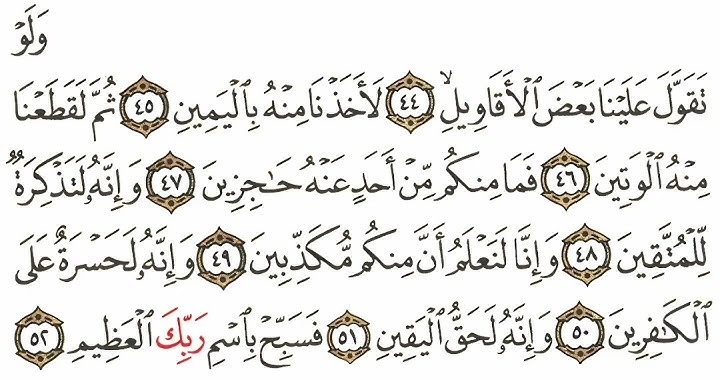 وَلَوْ
تَقَوَّلَ عَلَيْنَا بَعْضَ ٱلْأَقَاوِيلِ ٤٤ لَأَخَذْنَا مِنْهُ بِٱلْيَمِينِ ٤٥ ثُمَّ لَقَطَعْنَا
مِنْهُ ٱلْوَتِينَ ٤٦ فَمَا مِنكُم مِّنْ أَحَدٍ عَنْهُ حَٰجِزِينَ ٤٧ وَإِنَّهُۥ لَتَذْكِرَةٌ
لِّلْمُتَّقِينَ ٤٨ وَإِنَّا لَنَعْلَمُ أَنَّ مِنكُم مُّكَذِّبِينَ ٤٩ وَإِنَّهُۥ لَحَسْرَةٌ عَلَى
ٱلْكَٰفِرِينَ ٥٠ وَإِنَّهُۥ لَحَقُّ ٱلْيَقِينِ ٥١ فَسَبِّحْ بِٱسْمِ رَبِّكَ ٱلْعَظِيمِ ٥٢